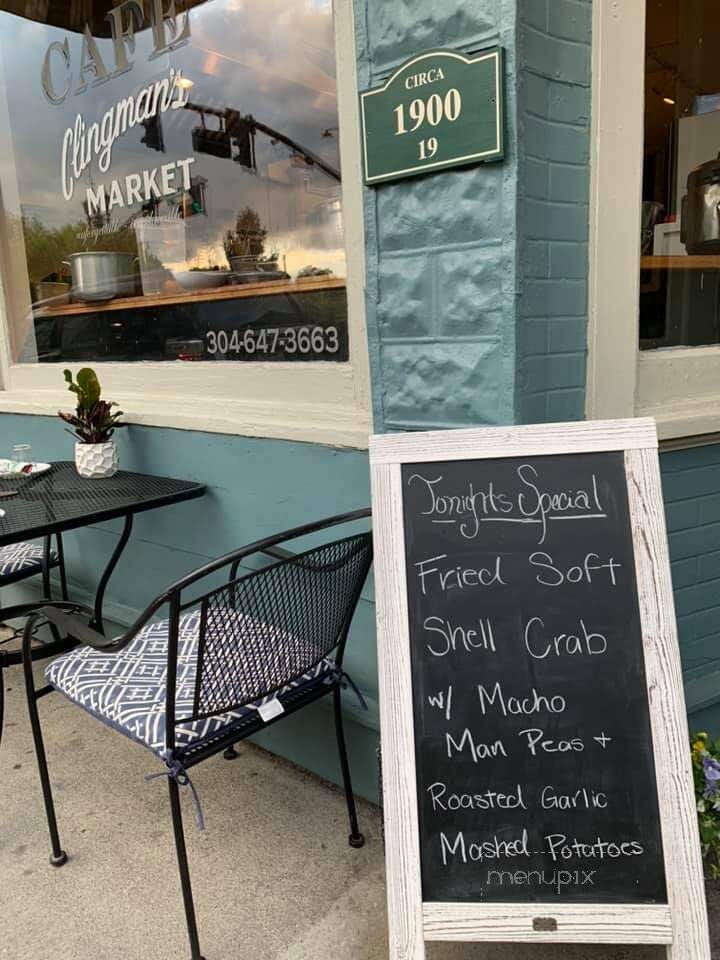 CAFE
Clingman's
MARKET
304-647-3663
CIRCA
1900
19
Tonights Special
Fried Soft
Shell Crab
w/ Macho
Man Peas +
Roasted Garlic
Mashed Potatoes
menupix